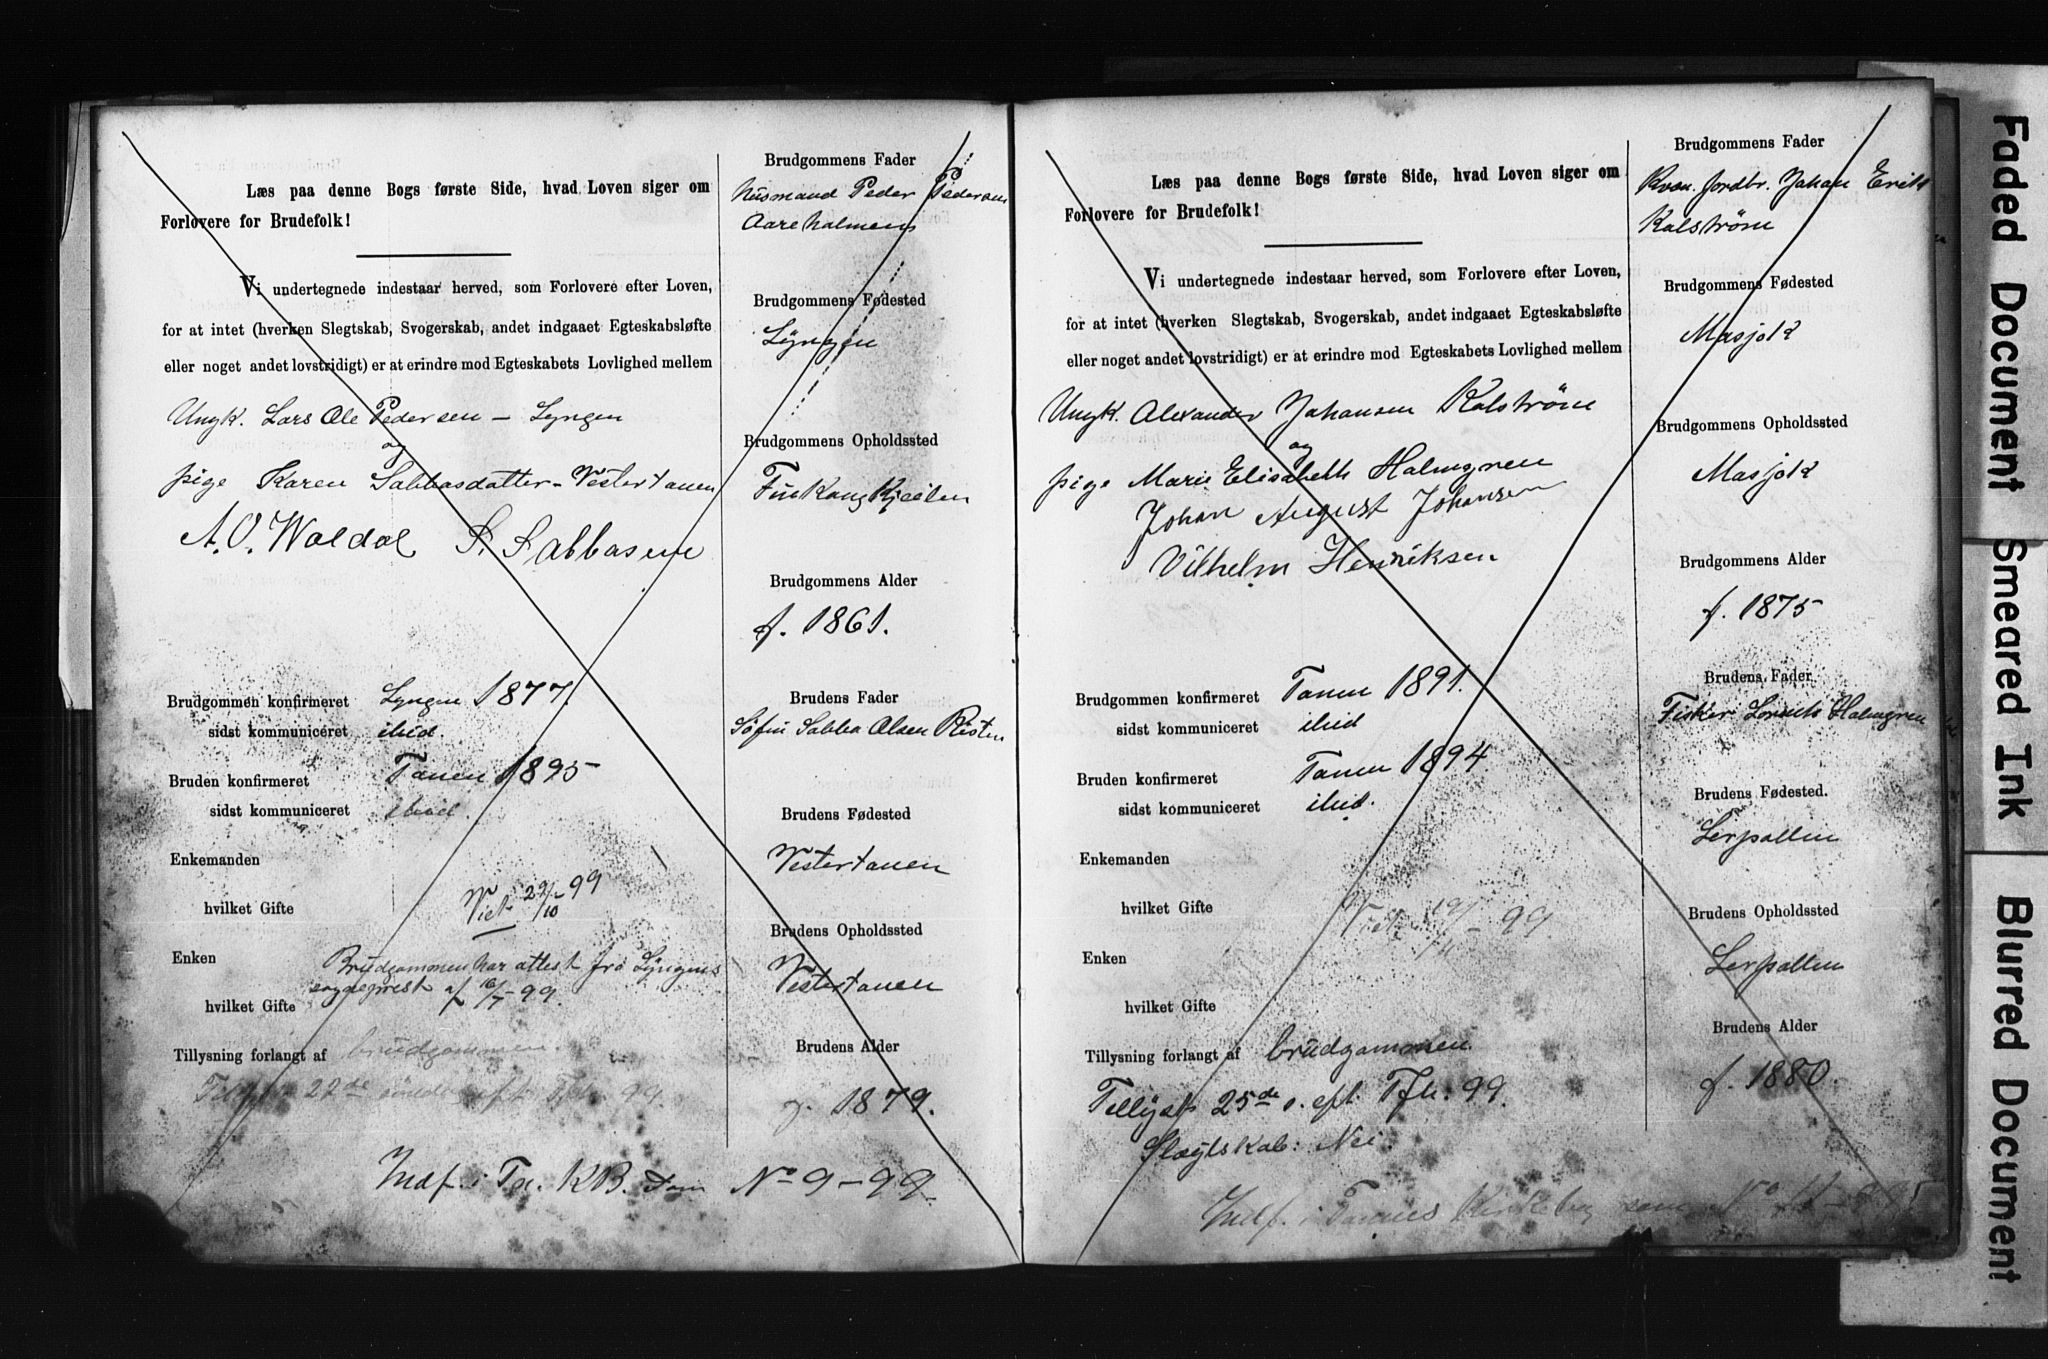 Læs paa denne Bogs første Side, hvad Loven siger om
Forlovere for Brudefolk!
Vi undertegnede indestaar herved, som Forlovere efter Loven,
for at intet (hverken Slegtskab, Svogerskab, andet indgaaet Egteskabsløfte
eller noget andet lovstridigt) er at erindre mod Egteskabets Lovlighed mellem
Ungk. Lars Ole Pedersen – Lyngen
og
pige Karen Sabbasdatter – Vestertanen
A. O. Waldal S. Sabbasen
Brudgommen konfirmeret Lyngen 1877.
sidst kommuniceret ibid.
Bruden konfirmeret Tanen 1895
sidst kommuniceret ibid.
Enkemanden
hvilket Gifte
Viet 29/10 – 99
Enken
Brudgommen har attest fra Lyngens
sogneprest af 16/7 – 99.
hvilket Gifte
Tillysning forlangt af brudgommen.
22de eft. Tfh. 99.
Indf. i Tn. KB. som No 9 – 99.
Brudgommens Fader
Husmand Peder Pedersen
Aareholmen
Brudgommens Fødested
Lyngen
Brudgommens Opholdssted
Brudgommens Alder
f. 1861.
Brudens Fader
Søfin Sabba Olsen Risten
Brudens Fødested
Vestertanen
Brudens Opholdssted
Vestertanen
Brudens Alder
f. 1879.
Læs paa denne Bogs første Side, hvad Loven siger om
Forlovere for Brudefolk!
Vi undertegnede indestaar herved, som Forlovere efter Loven,
for at intet (hverken Slegtskab, Svogerskab, andet indgaaet Egteskabsløfte
eller noget andet lovstridigt) er at erindre mod Egteskabets Lovlighed mellem
Ungk. Alexander Johansen Kalstrøm
og
pige Marie Elisabeth Halmgren
Johan August Johansen
Vilhelm Henriksen
Brudgommen konfirmeret Tanen 1891.
sidst kommuniceret ibid
Bruden konfirmeret Tanen 1894
sidst kommuniceret ibid.
Enkemanden
hvilket Gifte
Viet 19/11 – 99.
Enken
hvilket Gifte
Tillysning forlangt af brudgommen.
Tillyst 25de s. eft. Tfh. 99.
Slægtskab: Nei
Indf. i Tanens Kirkebog som No 11
Brudgommens Fader
Kvæn. jordbr. Johan Erik
Kalstrøm
Brudgommens Fødested
Masjok
Brudgommens Opholdssted
Masjok
Brudgommens Alder
f. 1875
Brudens Fader
Fisker Halmgren
Brudens Fødested.
Lerpollen
Brudens Opholdssted
Lerpollen
Brudens Alder
f. 1880.
Faded Document
Smeared Ink
Blurred Document